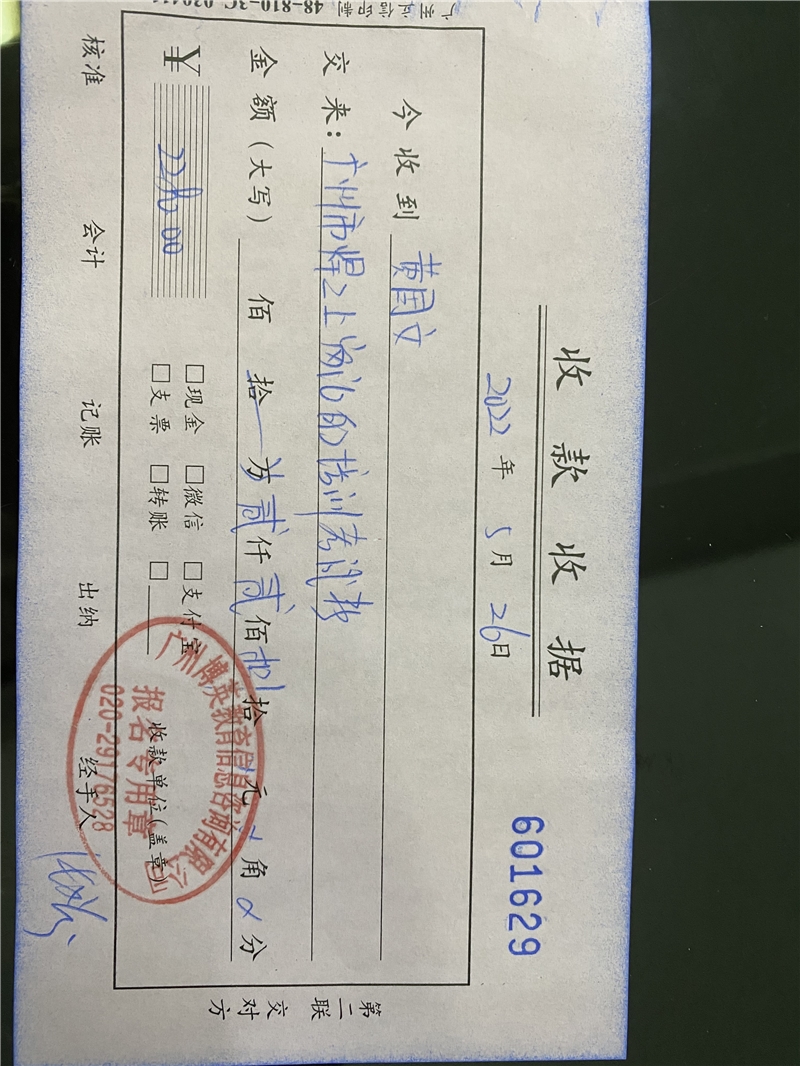 收款收据
601629
2022年5月26日
今收到 黄国文
交来：广州市焊工上岗证的培训考试费
金额（大写） 佰 拾 万 贰 仟 贰 佰 拾 元 角 分
¥ 2200.00
□现金 □微信 □支付宝
□支票 □转账 □
收款单位(盖章)
广州博英教育信息咨询有限公司
报名专用章
020-29176528
核准 会计 记账 出纳 经手人
第二联 交对方